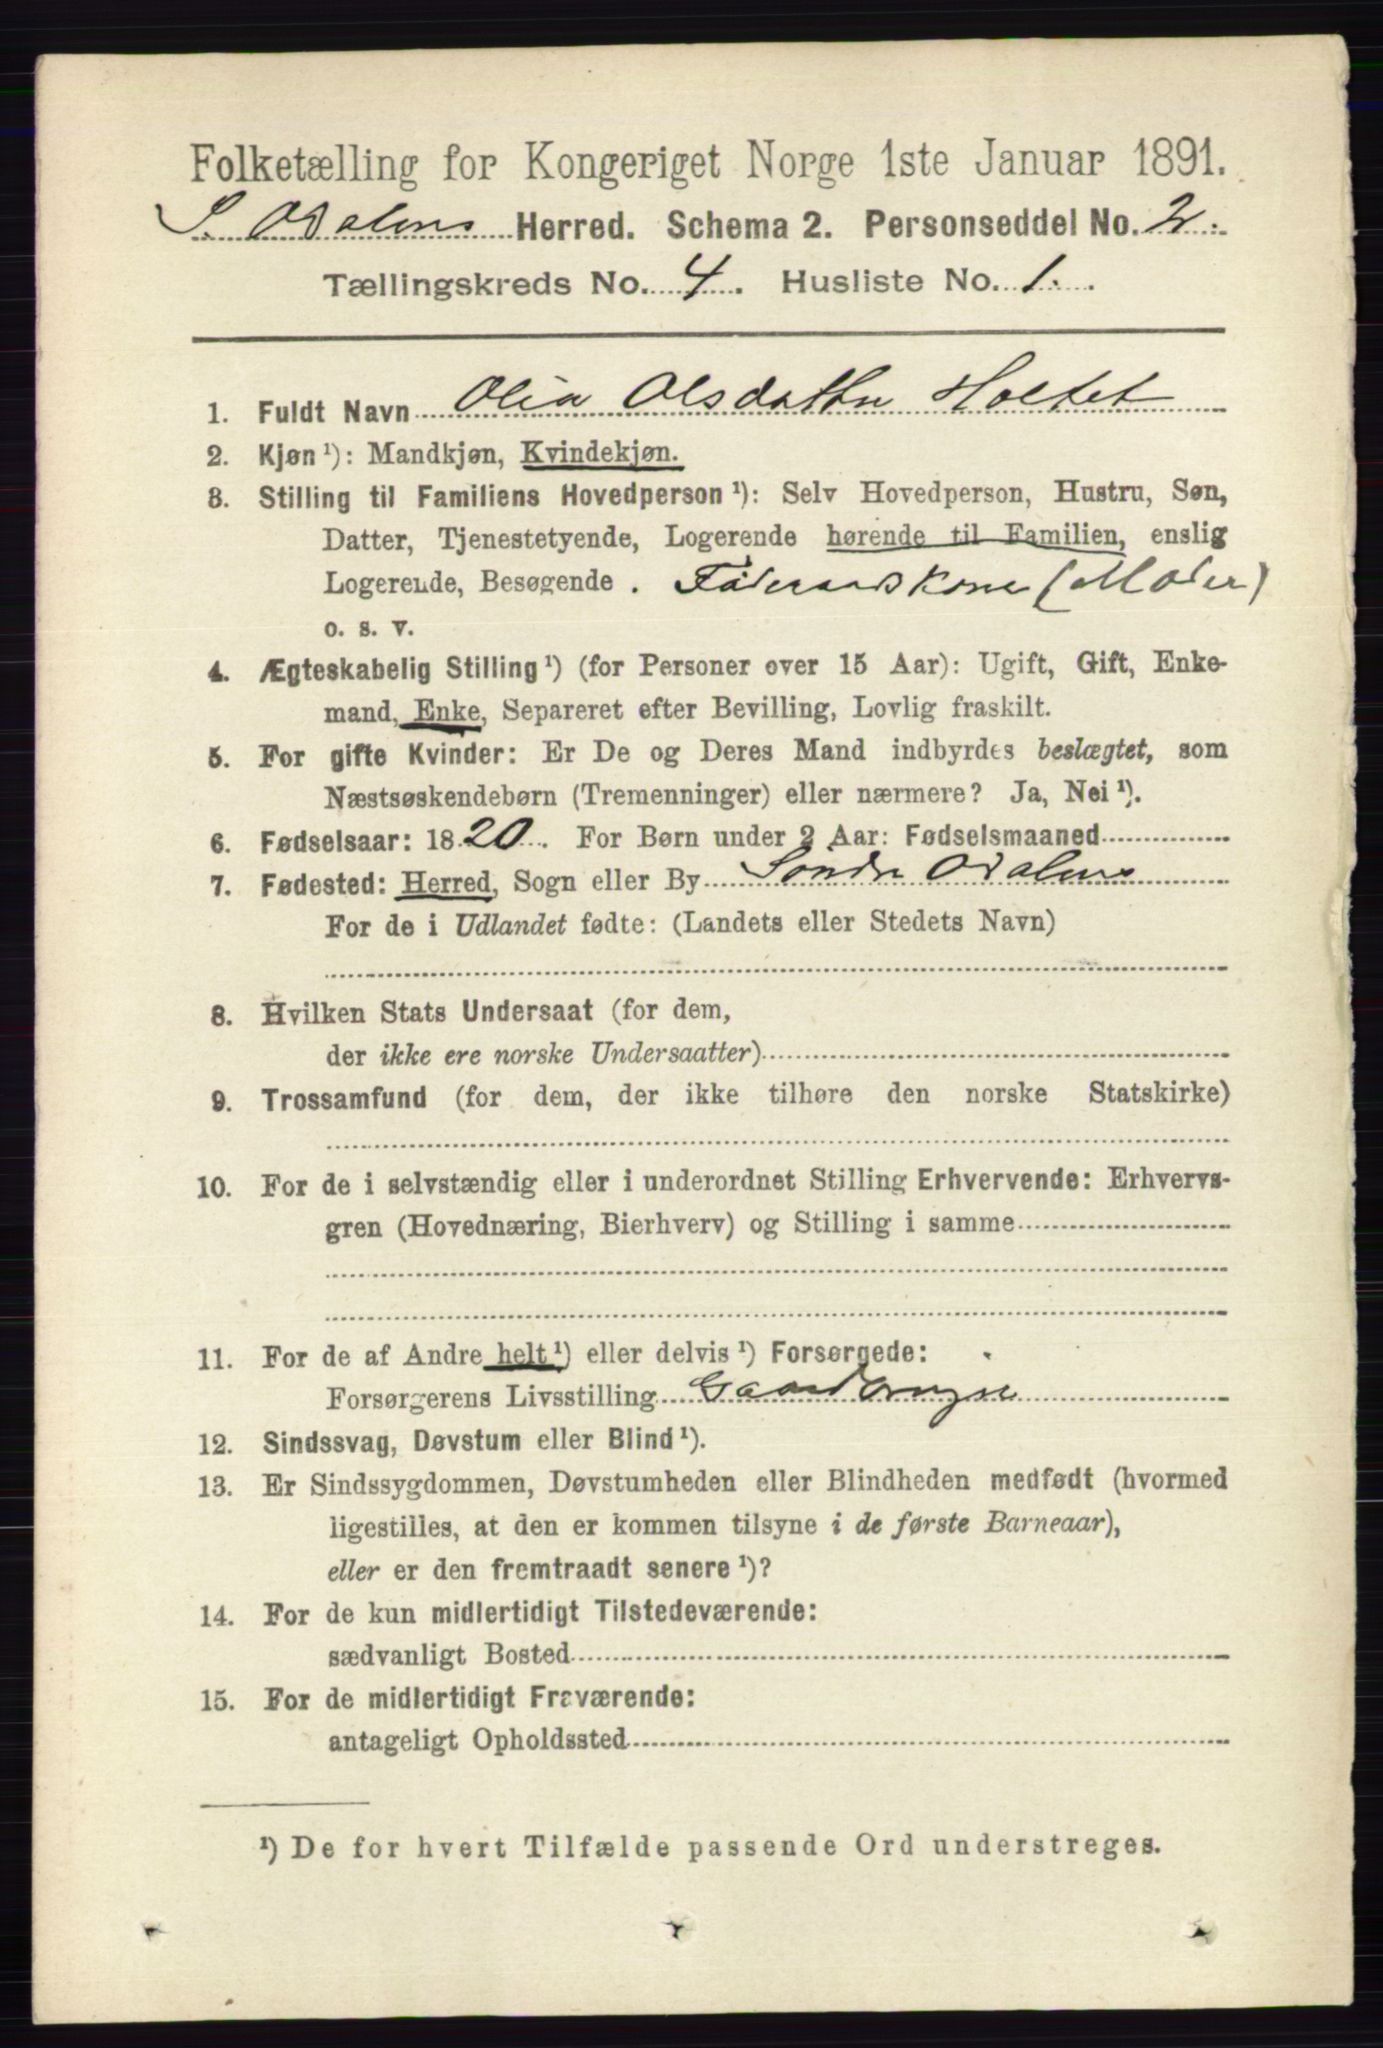 Folketælling for Kongeriget Norge 1ste Januar 1891.
S. Odalens Herred. Schema 2. Personseddel No. 2.
Tællingskreds No. 4. Husliste No. 1.
1. Fuldt Navn Olia Olsdatter Holtet
2. Kjøn ¹): Mandkjøn, Kvindekjøn.
3. Stilling til Familiens Hovedperson ¹): Selv Hovedperson, Hustru, Søn,
Datter, Tjenestetyende, Logerende hørende til Familien, enslig
Logerende, Besøgende . Føderaadskone (Moder)
o. s. v.
4. Ægteskabelig Stilling ¹) (for Personer over 15 Aar): Ugift, Gift, Enke-
mand, Enke, Separeret efter Bevilling, Lovlig fraskilt.
5. For gifte Kvinder: Er De og Deres Mand indbyrdes beslægtet, som
Næstsøskendebørn (Tremenninger) eller nærmere? Ja, Nei ¹).
6. Fødselsaar: 1820. For Børn under 2 Aar: Fødselsmaaned
7. Fødested: Herred, Sogn eller By Søndre Odalens
For de i Udlandet fødte: (Landets eller Stedets Navn)
8. Hvilken Stats Undersaat (for dem,
der ikke ere norske Undersaatter)
9. Trossamfund (for dem, der ikke tilhøre den norske Statskirke)
10. For de i selvstændig eller i underordnet Stilling Erhvervende: Erhvervs-
gren (Hovednæring, Bierhverv) og Stilling i samme
11. For de af Andre helt ¹) eller delvis ¹) Forsørgede:
Forsørgerens Livsstilling Gaardbruger
12. Sindssvag, Døvstum eller Blind ¹).
13. Er Sindssygdommen, Døvstumheden eller Blindheden medfødt (hvormed
ligestilles, at den er kommen tilsyne i de første Barneaar),
eller er den fremtraadt senere ¹)?
14. For de kun midlertidigt Tilstedeværende:
sædvanligt Bosted
15. For de midlertidigt Fraværende:
antageligt Opholdssted
¹) De for hvert Tilfælde passende Ord understreges.